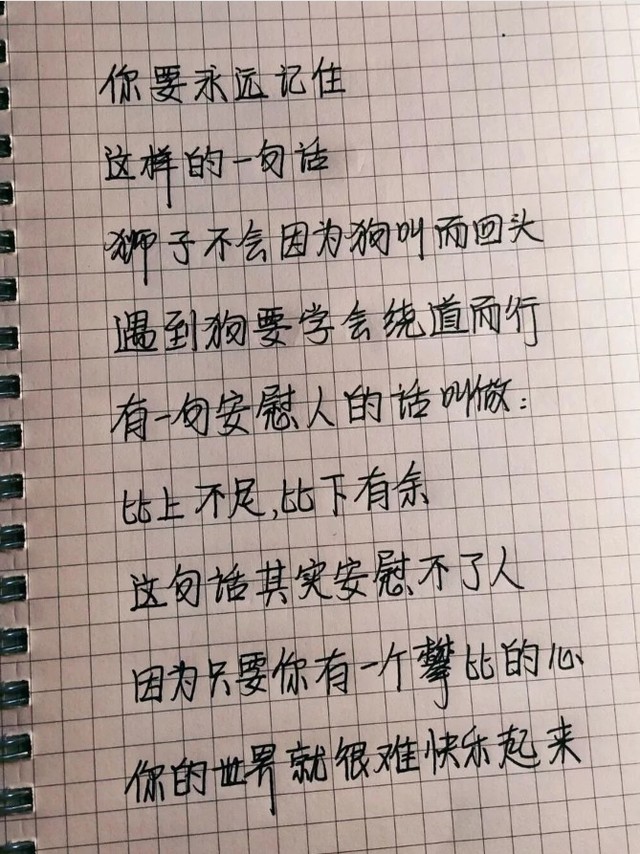 你要永远记住
这样的一句话
狮子不会因为狗叫而回头
遇到狗要学会绕道而行
有一句安慰人的话叫做：
比上不足,比下有余
这句话其实安慰不了人
因为只要你有一个攀比的心
你的世界就很难快乐起来